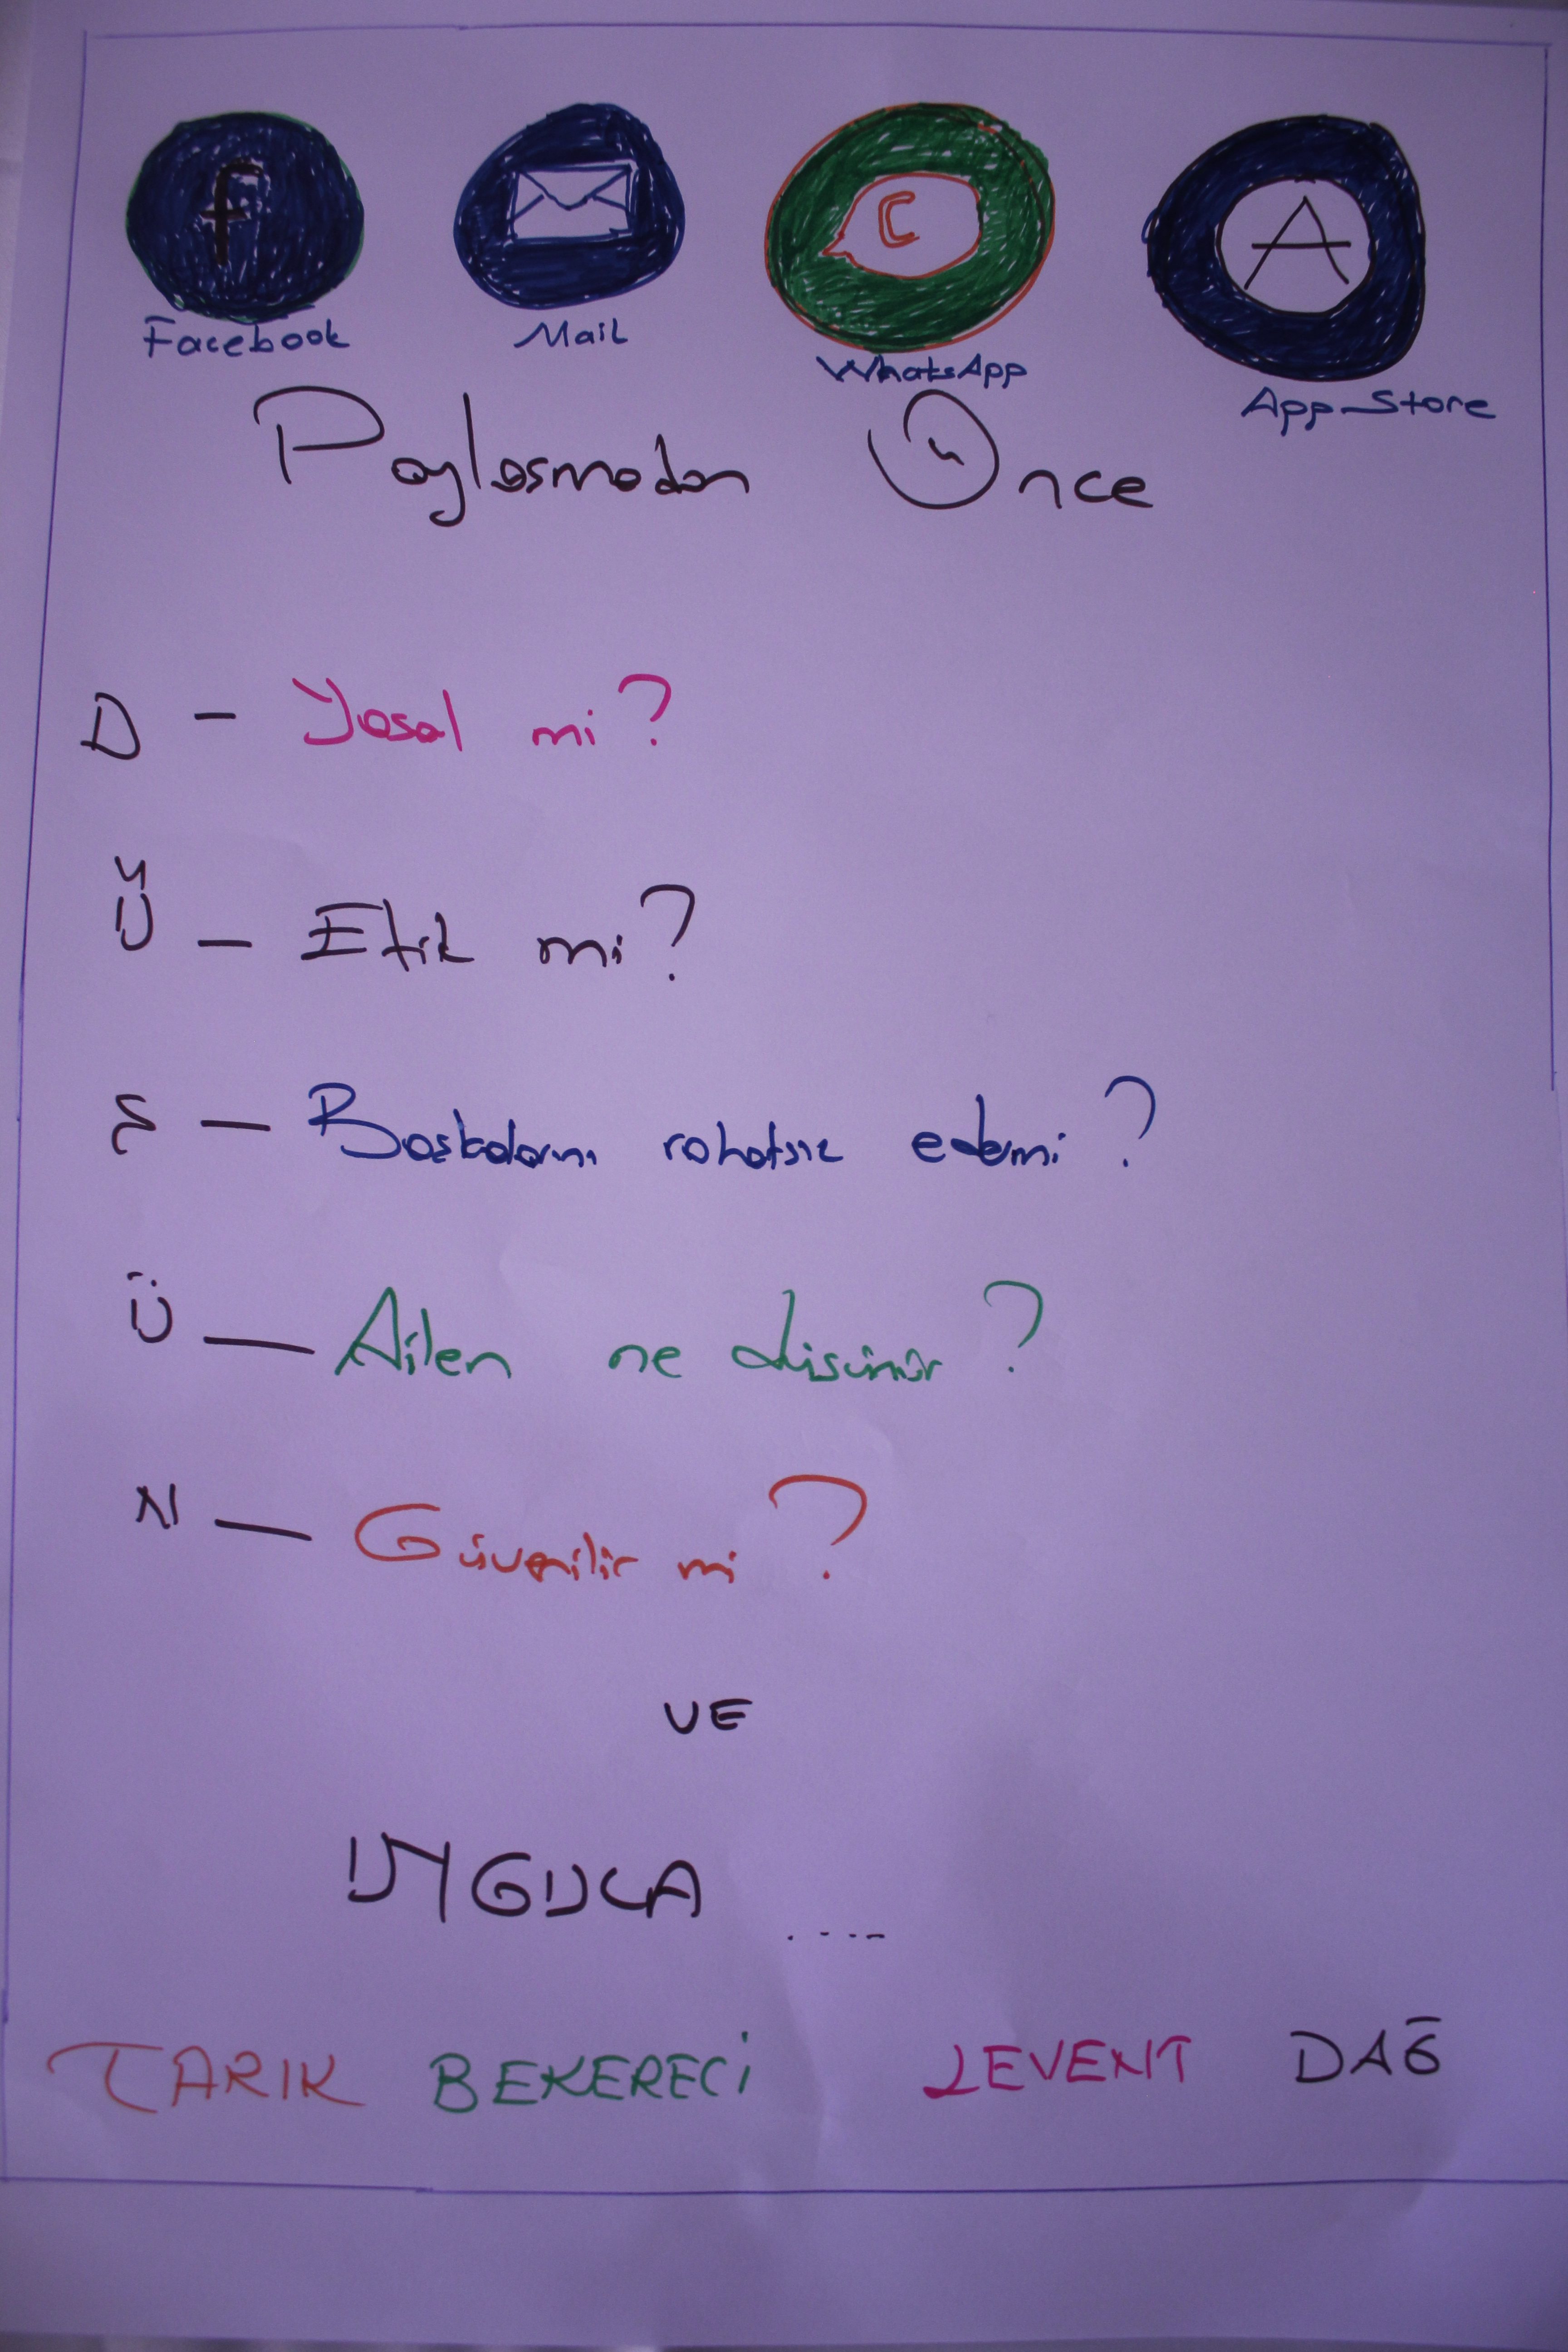 f
C
A
Facebook
Mail
WhatsApp
App-Store
Paylasmadan Önce
D - Yasal mi?
Ü - Etik mi?
Ş - Başkalarını rahatsız edermi?
Ü - Ailen ne düsünür?
N - Güvenilir mi?
VE
UYGULA .....
TARIK BEKERECİ LEVENT DAĞ